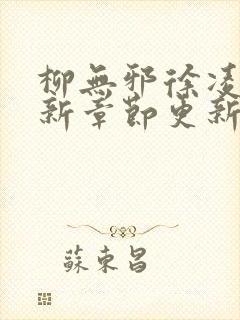 柳無邪徐凌
新章節更新
蘇東昌